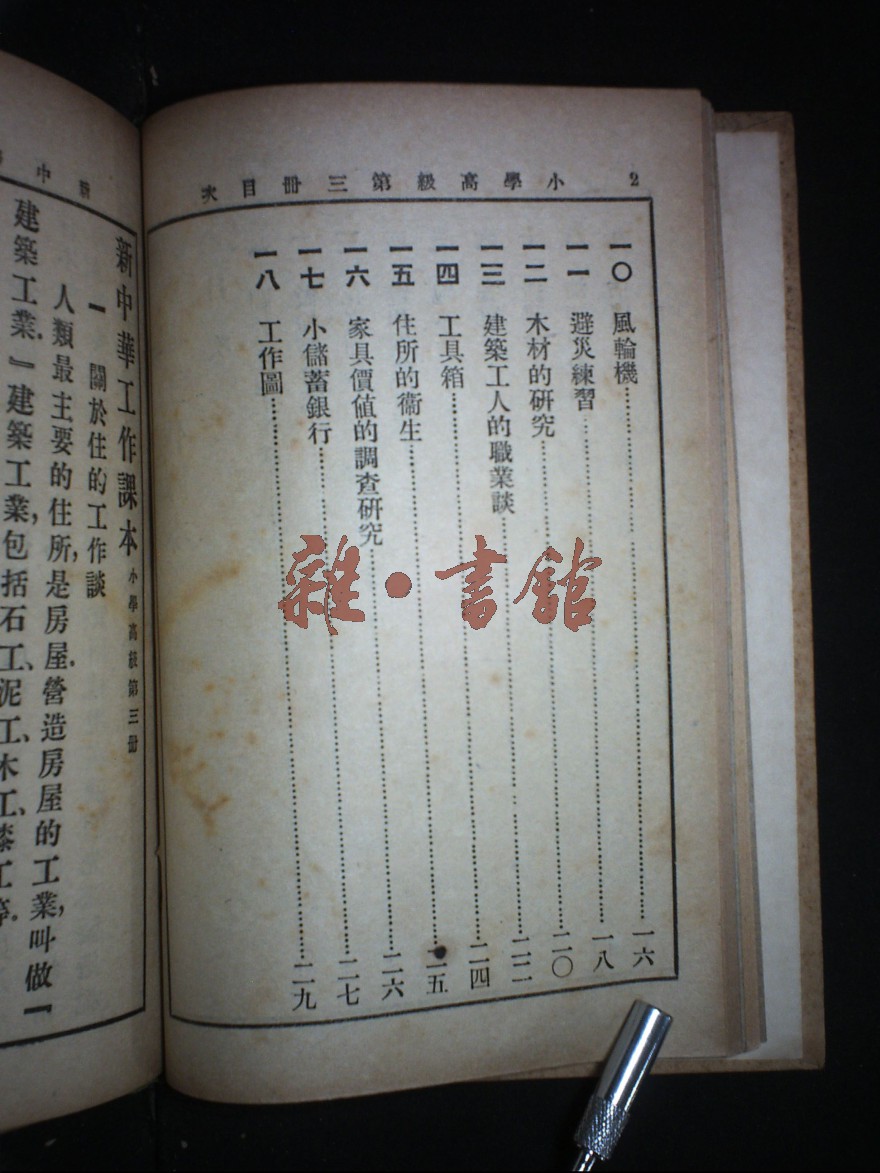 2　小學高級第三冊目次
一〇　風輪機……一六
一一　避災練習……一八
一二　木材的研究……二〇
一三　建築工人的職業談……二二
一四　工具箱……二四
一五　住所的衞生……二五
一六　家具價値的調查研究……二六
一七　小儲蓄銀行……二七
一八　工作圖……二九
新中
新中華工作課本　小學高級第三冊
一　關於住的工作談
人類最主要的住所,是房屋.營造房屋的工業,叫做『
建築工業.』建築工業,包括石工、泥工、木工、漆工等.
雜·書館